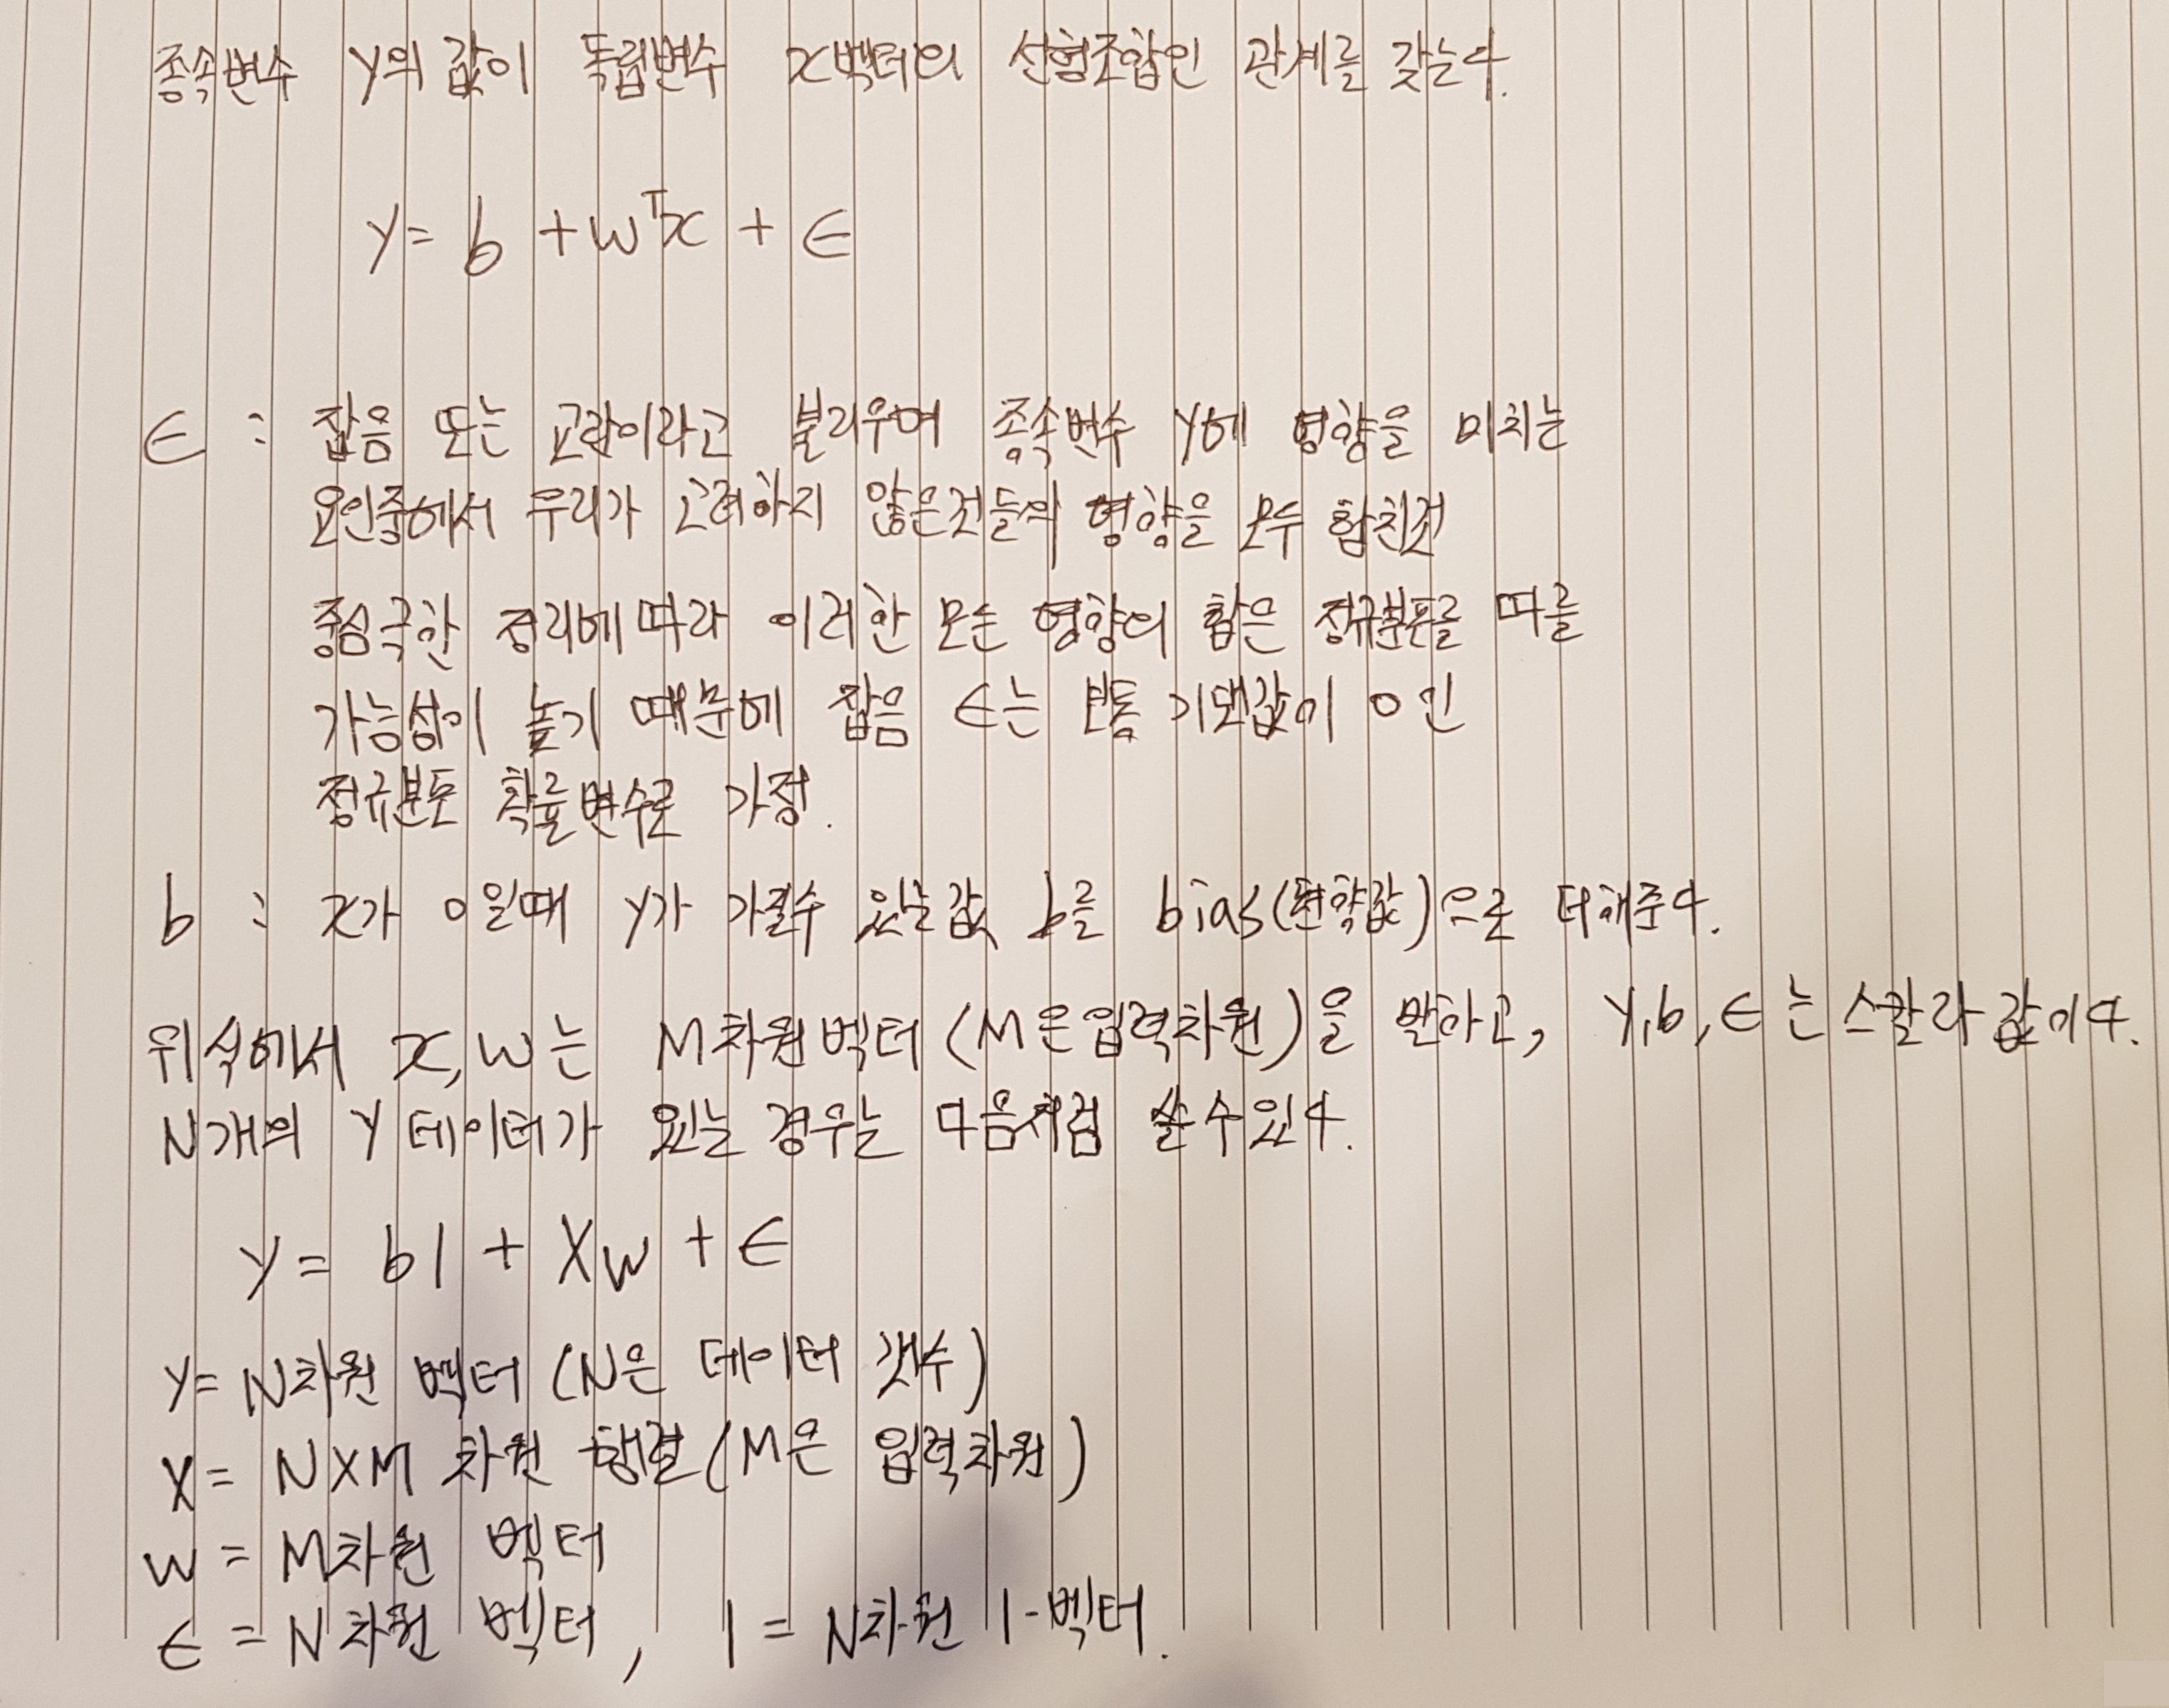 종속변수 y의 값이 독립변수 x벡터의 선형조합인 관계를 갖는다.
y = b + wᵀx + ϵ
ϵ : 잡음 또는 교란이라고 불리우며 종속변수 y에 영향을 미치는
요인중에서 우리가 고려하지 않은것들의 영향을 모두 합친것
중심극한 정리에 따라 이러한 모든 영향의 합은 정규분포를 따를
가능성이 높기 때문에 잡음 ϵ는 보통 기댓값이 0인
정규분포 확률변수로 가정.
b : x가 0일때 y가 가질수 있는값 b를 bias(편향값)으로 더해준다.
위식에서 x, w는 M차원벡터 (M은 입력차원)을 말하고, y, b, ϵ는 스칼라 값이다.
N개의 Y데이터가 있는 경우는 다음처럼 쓸수있다.
y = b1 + Xw + ϵ
y = N차원 벡터 (N은 데이터 갯수)
X = NXM 차원 행렬 (M은 입력차원)
w = M차원 벡터
ϵ = N차원 벡터, 1 = N차원 1-벡터.